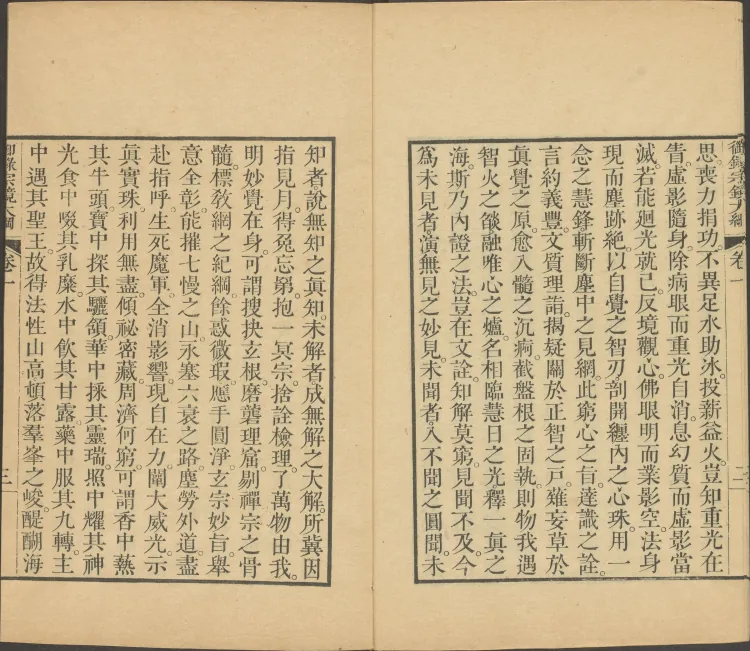 御錄宗鏡大綱
卷一
二
思。喪力捐功。不異足水助氷。投薪益火。豈知重光在
眚。虛影隨身。除病眼而重光自消。息幻質而虛影當
滅。若能廻光就己。反境觀心。佛眼明而業影空。法身
現而塵跡絕。以自覺之智刃。剖開纏內之心珠。用一
念之慧鋒。斬斷塵中之見網。此窮心之旨。達識之詮。
言約義豐。文質理詣。揭疑關於正智之戶。薙妄草於
眞覺之原。愈入髓之沉痾。截盤根之固執。則物我遇
智火之燄。融唯心之爐。名相臨慧日之光。釋一眞之
海。斯乃內證之法。豈在文詮。知解莫窮。見聞不及。今
爲未見者。演無見之妙見。未聞者。入不聞之圓聞。未
知者。說無知之眞知。未解者。成無解之大解。所冀因
指見月。得兔忘罤。抱一冥宗。捨詮檢理。了萬物由我。
明妙覺在身。可謂搜抉玄根。磨礱理窟。剔禪宗之骨
髓。標敎網之紀綱。餘惑微瑕。應手圓淨。玄宗妙旨。舉
意全彰。能摧七慢之山。永塞六衰之路。塵勞外道。盡
赴指呼。生死魔軍。全消影響。現自在力。闡大威光。示
眞實珠。利用無盡。傾祕密藏。周濟何窮。可謂香中爇
其牛頭。寶中探其驪頷。華中採其靈瑞。照中耀其神
光。食中啜其乳糜。水中飮其甘露。藥中服其九轉。主
中遇其聖王。故得法性山高。頓落羣峯之峻。醍醐海
御錄宗鏡大綱
卷一
三